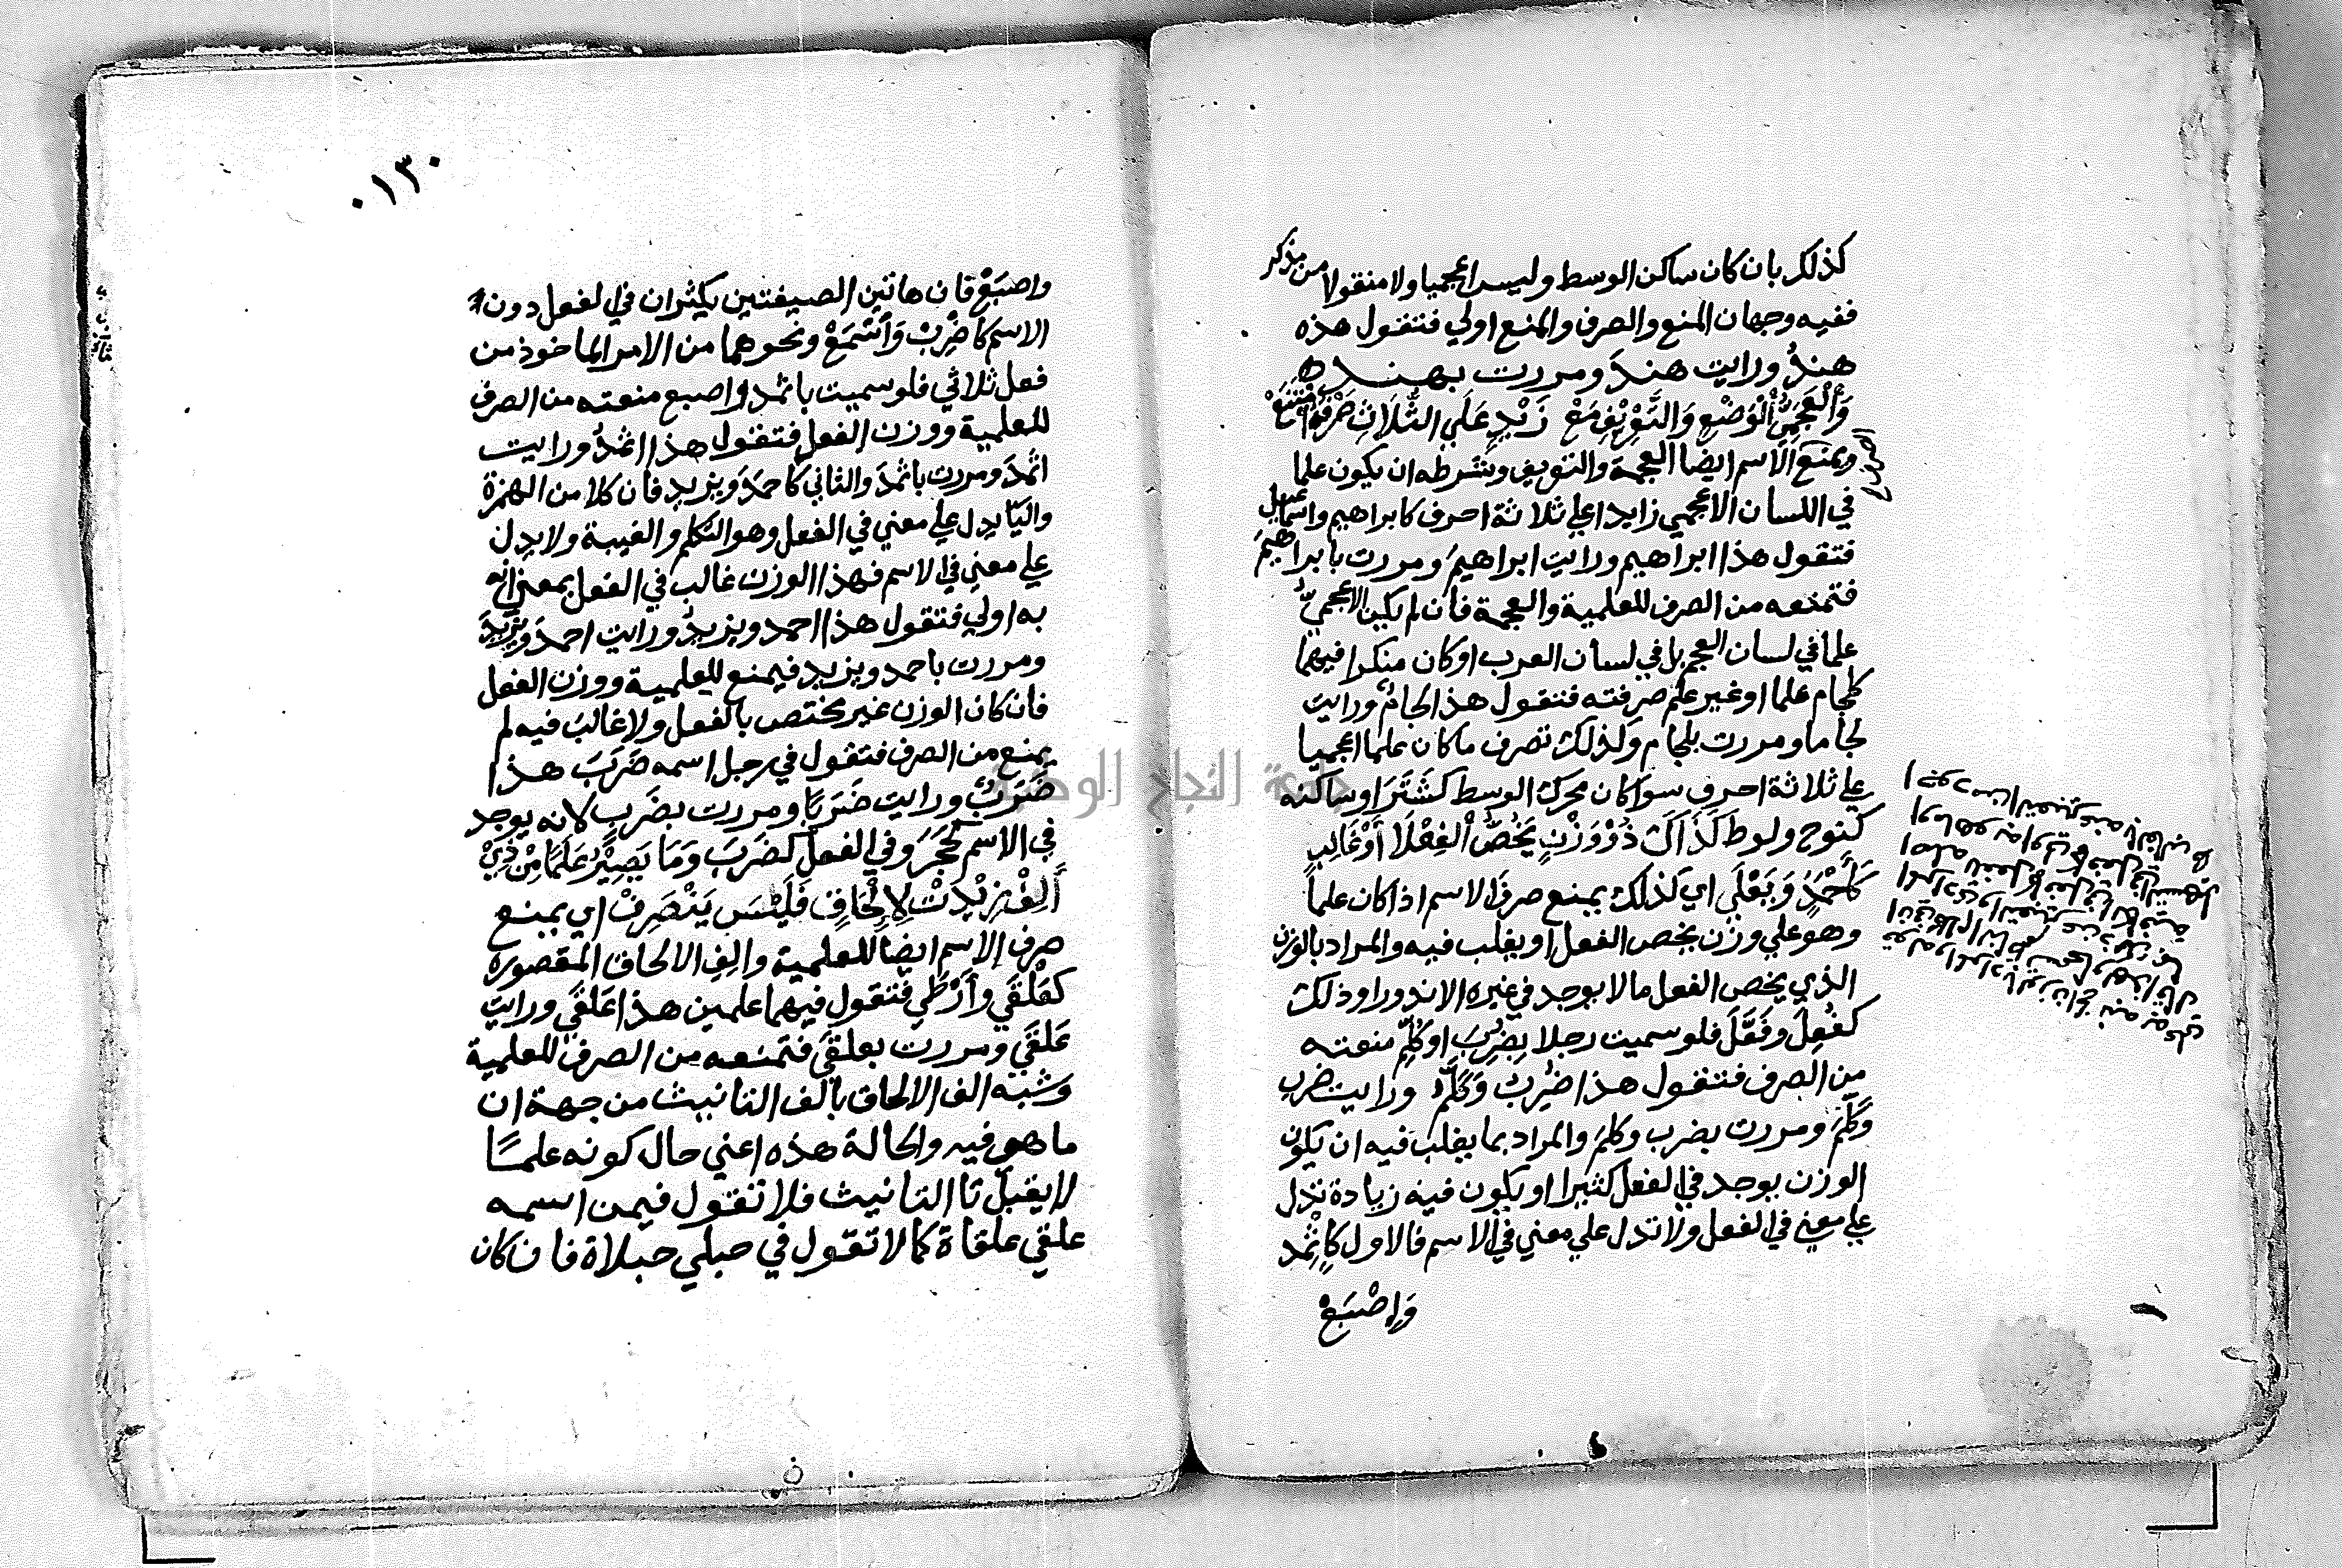 كذلك بان كان ساكن الوسط وليس اعجميا ولا منقولا من مذكر
ففيه وجهان المنع والصرف والمنع اولي فتقول هذه
هندُ ورايت هندَ ومررت بهند
وَالْعَجَمِيُّ الْوَضْعِ وَالتَّعْرِيْفِ مَعْ زَيْدٍ عَلَي الثَّلَاثِ صَرْفُهُ امْتَنَعْ
ويمنع الاسم ايضا العجمة والتعريف وشرطه ان يكون علما
في اللسان الاعجمي زايدا علي ثلاثة احرف كابراهيم واسماعيل
فتقول هذا ابراهيم ورايت ابراهيمَ ومررت بابراهيمَ
فتمنعه من الصرف للعلمية والعجمة فان لم يكن الاعجميُّ
علما في لسان العجم بل في لسان العرب او كان منكرا فيهما
كلجام علما او غير علم صرفته فتقول هذا لجامٌ ورايت
لجاما ومررت بلجام وكذلك تصرف ما كان علما اعجميا
علي ثلاثة احرف سوا كان محرك الوسط كشَتَرَ او ساكنه
كنوح ولوط كَذَاكَ ذُوْ وَزْنٍ يَخُصُّ الْفِعْلَا أَوْ غَالِبٍ
كَأَحْمَدٍ وَيَعْلَي اي كذلك يمنع صرفَ الاسم اذا كان علماً
وهو علي وزن يخص الفعل او يغلب فيه والمراد بالوزن
الذي يخص الفعل ما لا يوجد في غيره الا ندورا وذلك
كفُعِلَ وفَعَّلَ فلو سميت رجلا بضُرِبَ او كلَّم منعته
من الصرف فتقول هذا ضُرِبُ وكَلَّمُ ورايت ضرب
وكَلَّمَ ومررت بضرب وكلمَ والمراد بما يغلب فيه ان يكون
الوزن يوجد في الفعل كثيرا او يكون فيه زيادة تدل
علي معني في الفعل ولا تدل علي معني في الاسم فالاول كاِثْمد
وَاِصْبَعْ
٠١٣٠
واصبَعْ فان هاتين الصيغتين يكثران في الفعل دون
الاسم كاضْرِبْ وَاَسْمَعْ ونحوهما من الامر الماخوذ من
فعل ثلاثي فلو سميت باثمد واصبع منعته من الصرف
للعلمية ووزن الفعل فتقول هذا اثمدُ ورايت
اثمدَ ومررت باثمدَ والثاني كاحمدَ ويزيد فان كلا من الهمزة
واليا يدل علي معني في الفعل وهو التكلم والغيبة ولا يدل
علي معني في الاسم فهذا الوزن غالب في الفعل بمعني انه
به اولي فتقول هذا احمد ويزيدُ ورايت احمدَ ويزيدَ
ومررت باحمد ويزيد فيمنع للعلمية ووزن الفعل
فان كان الوزن غير مختص بالفعل ولا غالب فيه لم
يمنع من الصرف فتقول في رجل اسمه ضَرَبَ هذا
ضَرَبٌ ورايت ضَرَبًا ومررت بضَرَبٍ لانه يوجد
في الاسم كحَجَر وفي الفعل كضَرَبَ وَمَا يَصِيْرُ عَلَمًا مِنْ ذِيْ
أَلِفْ زِيْدَتْ لِإِلْحَاقٍ فَلَيْسَ يَنْصَرِفْ اي يمنع
صرف الاسم ايضا للعلمية والف الالحاق المقصوره
كعَلْقَي وأَرْطَي فتقول فيهما علمين هذا عَلقَي ورايت
عَلقَي ومررت بعلقَي فتمنعه من الصرف للعلمية
وشبه الف الالحاق بالف التانيث من جهة ان
ما هي فيه والحالة هذه اعني حال كونه علمًا
لا يقبل تا التانيث فلا تقول فيمن اسمه
علقي علقاة كما لا تقول في حبلي حبلاة فان كان